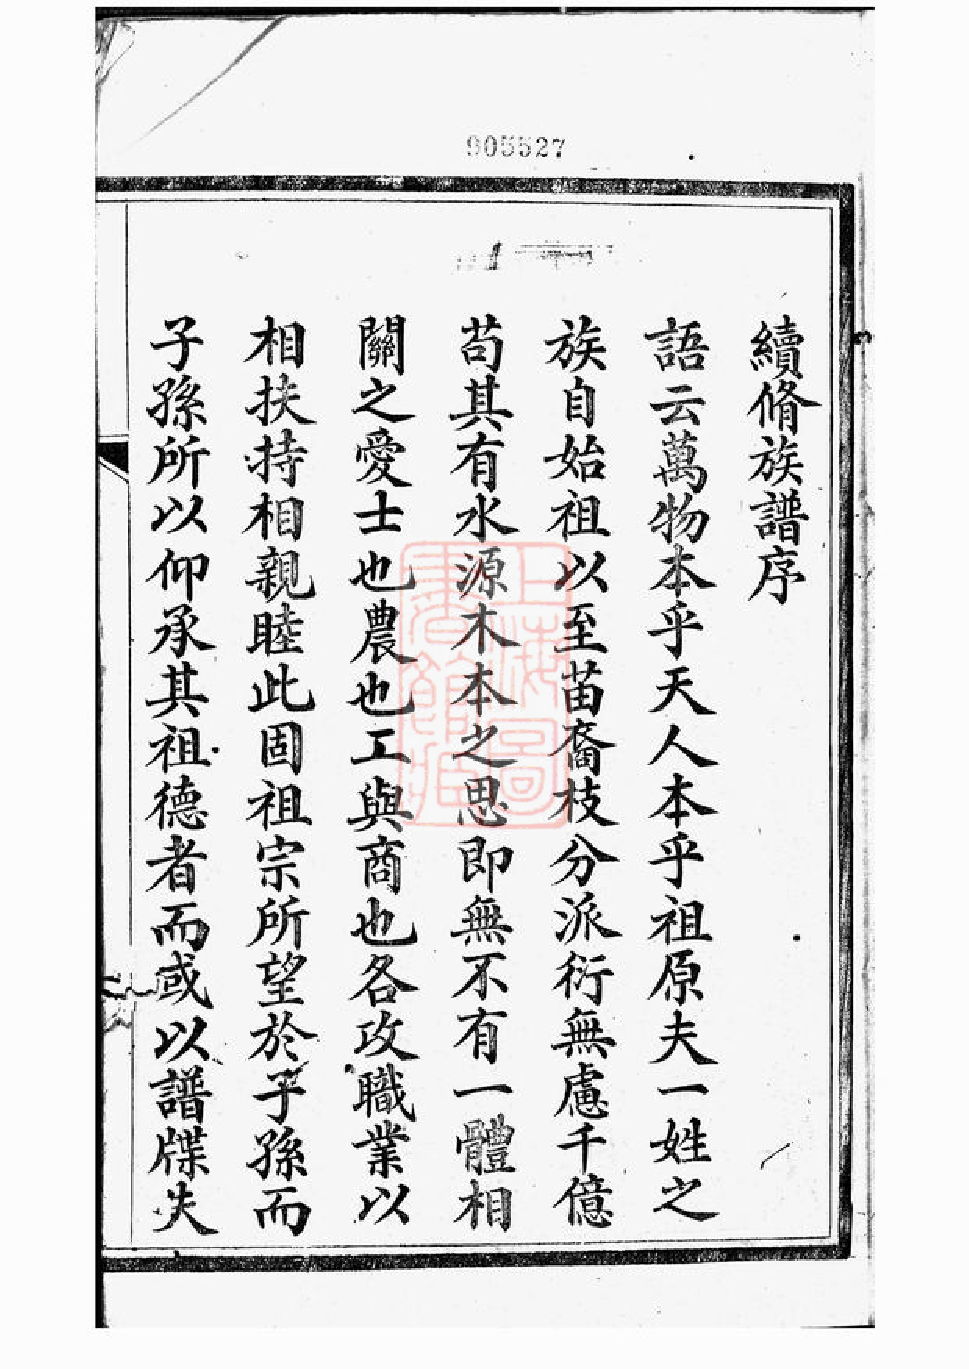 905527
續脩族譜序
語云萬物本乎天人本乎祖原夫一姓之
族自始祖以至苗裔枝分派衍無慮千億
苟其有水源木本之思即無不有一體相
關之愛士也農也工與商也各攻職業以
相扶持相親睦此固祖宗所望於子孫而
子孫所以仰承其祖德者而或以譜牒失
上海圖
書館藏